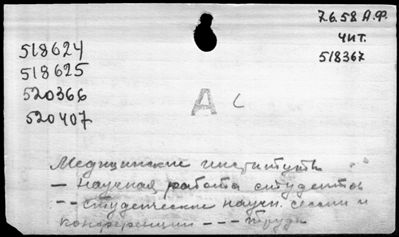 7.6.58 А.Ф.
чит.
518367
518624
518625
520366
520407
А с
Медицинские институты
— научная работа студентов
-- студенческие научн. сессии и
конференции --- труды